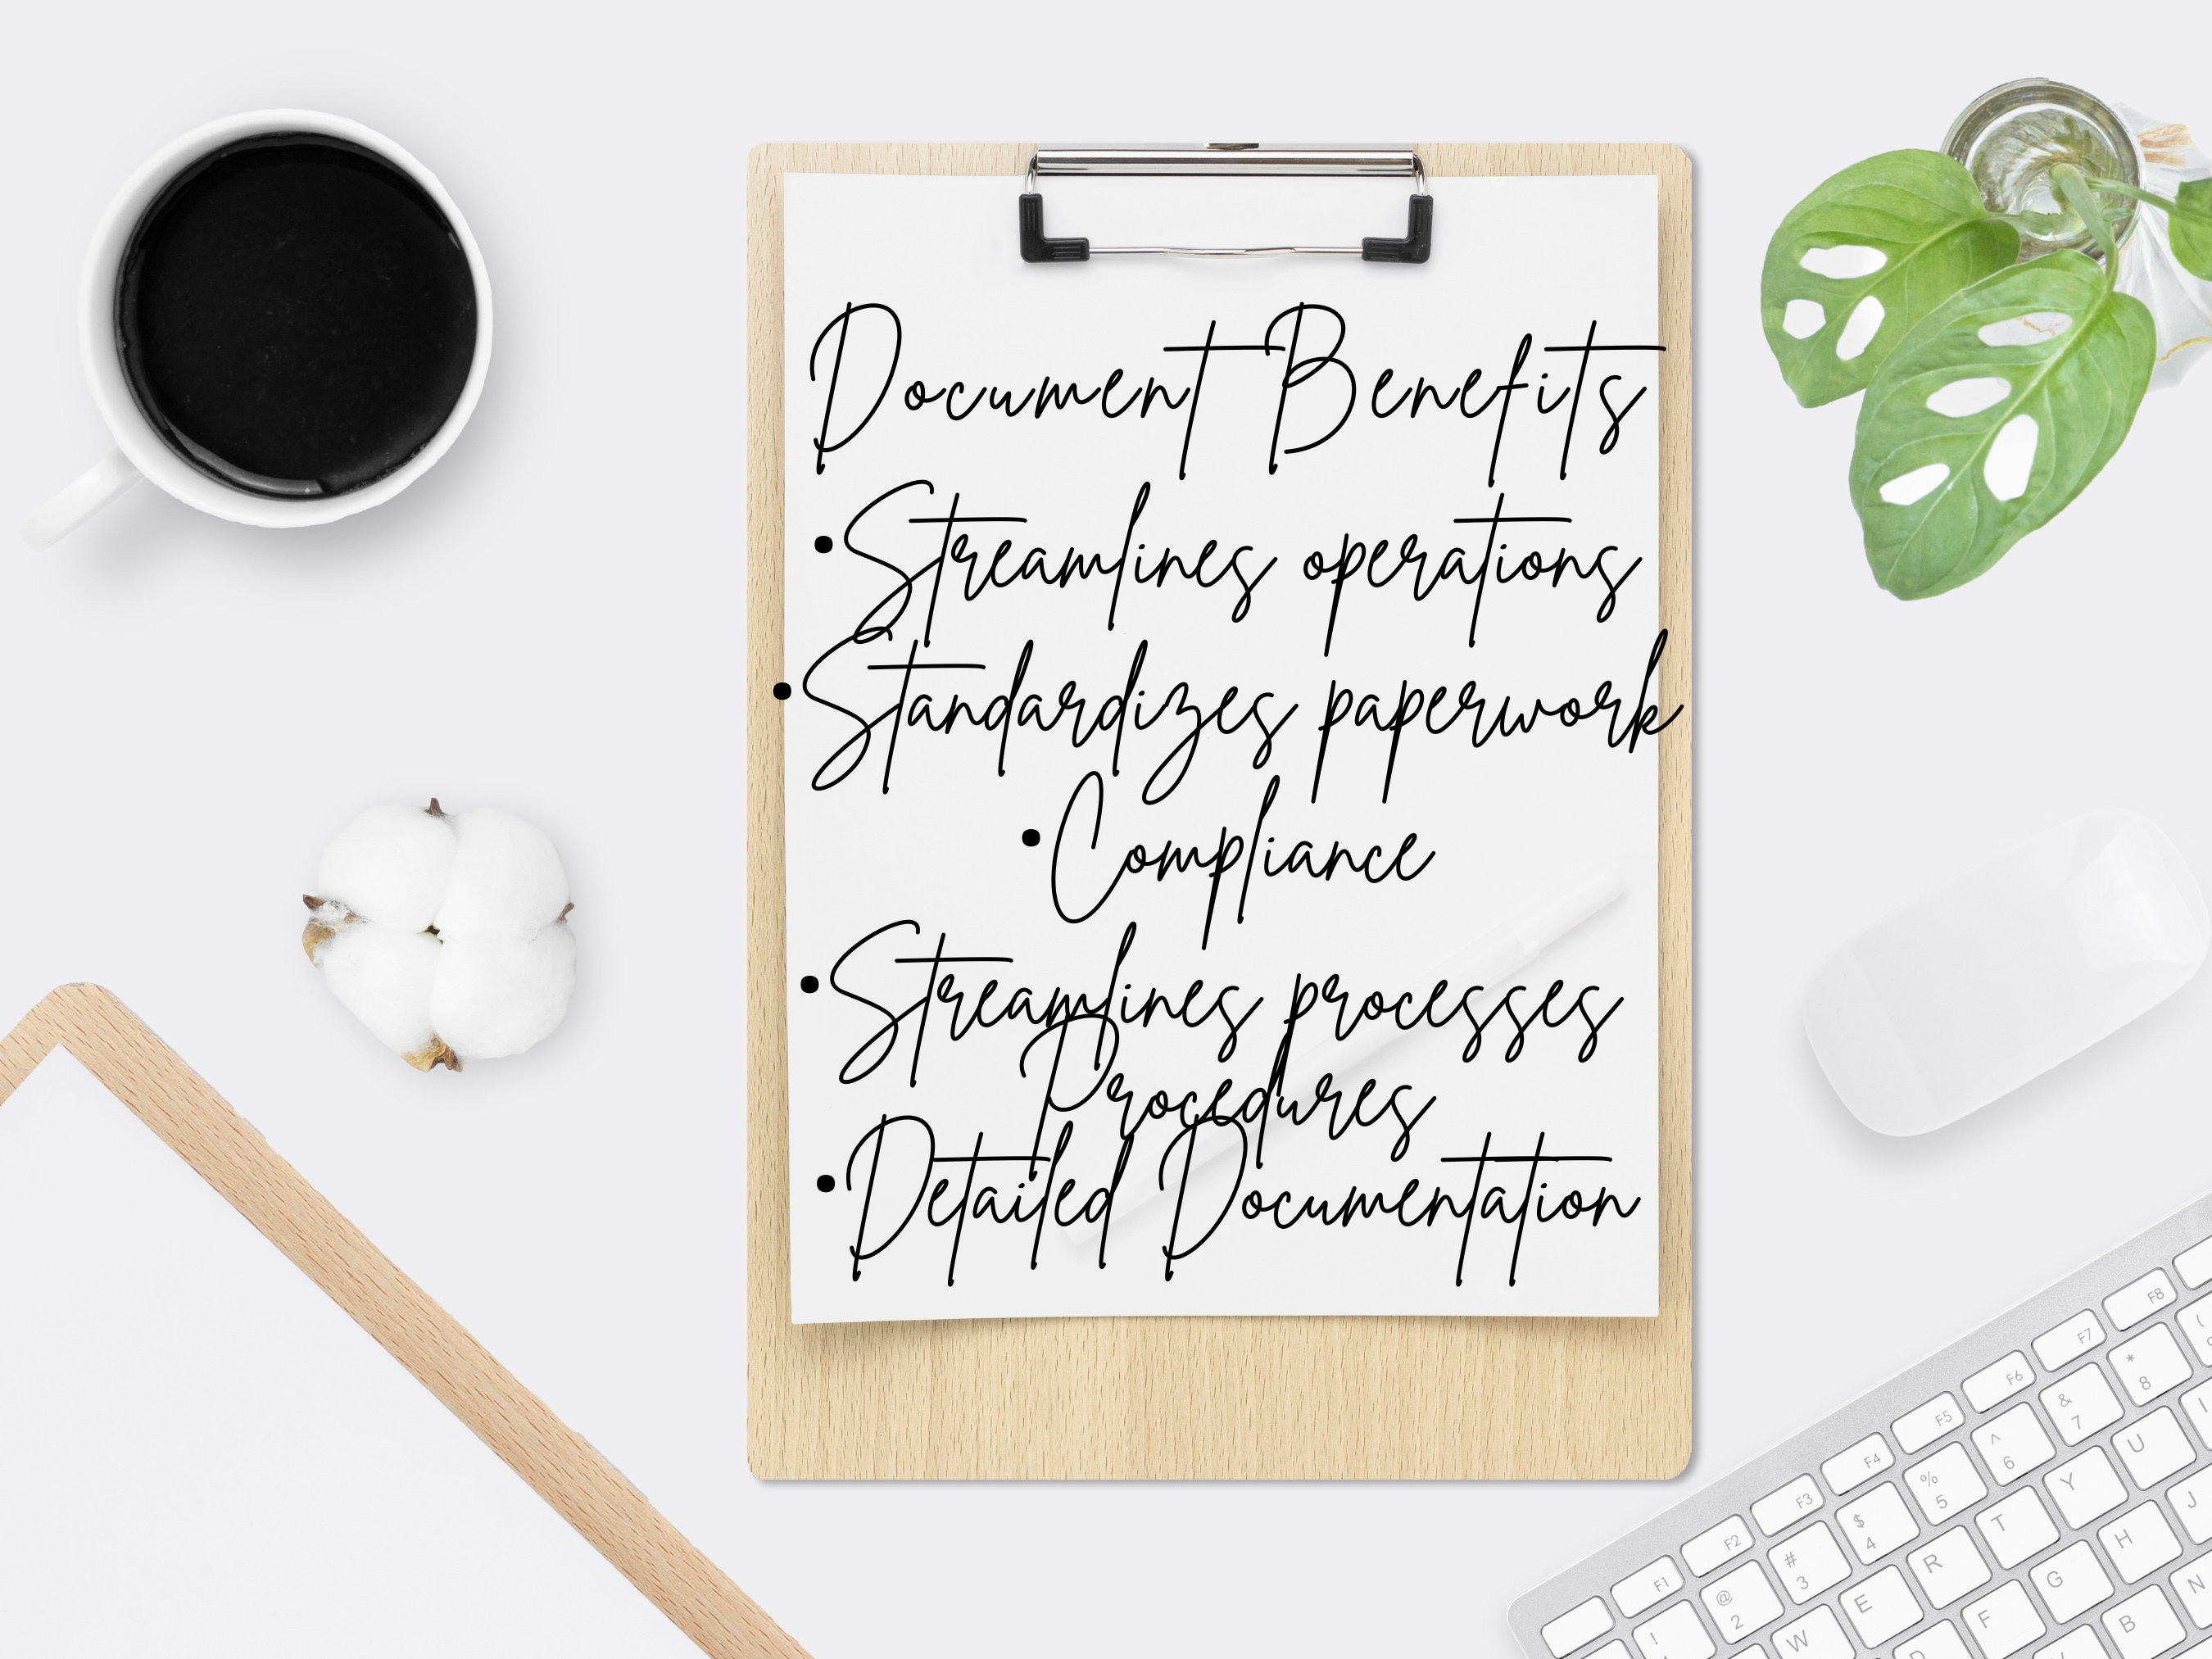 Document Benefits
•Streamlines operations
•Standardizes paperwork
•Compliance
•Streamlines processes
Procedures
•Detailed Documentation
F8
F7
F6
F5
F4
F3
F2
F1
* 8
& 7
^ 6
% 5
$ 4
# 3
@ 2
!
U
Y
T
R
E
W
J
H
G
F
D
N
B